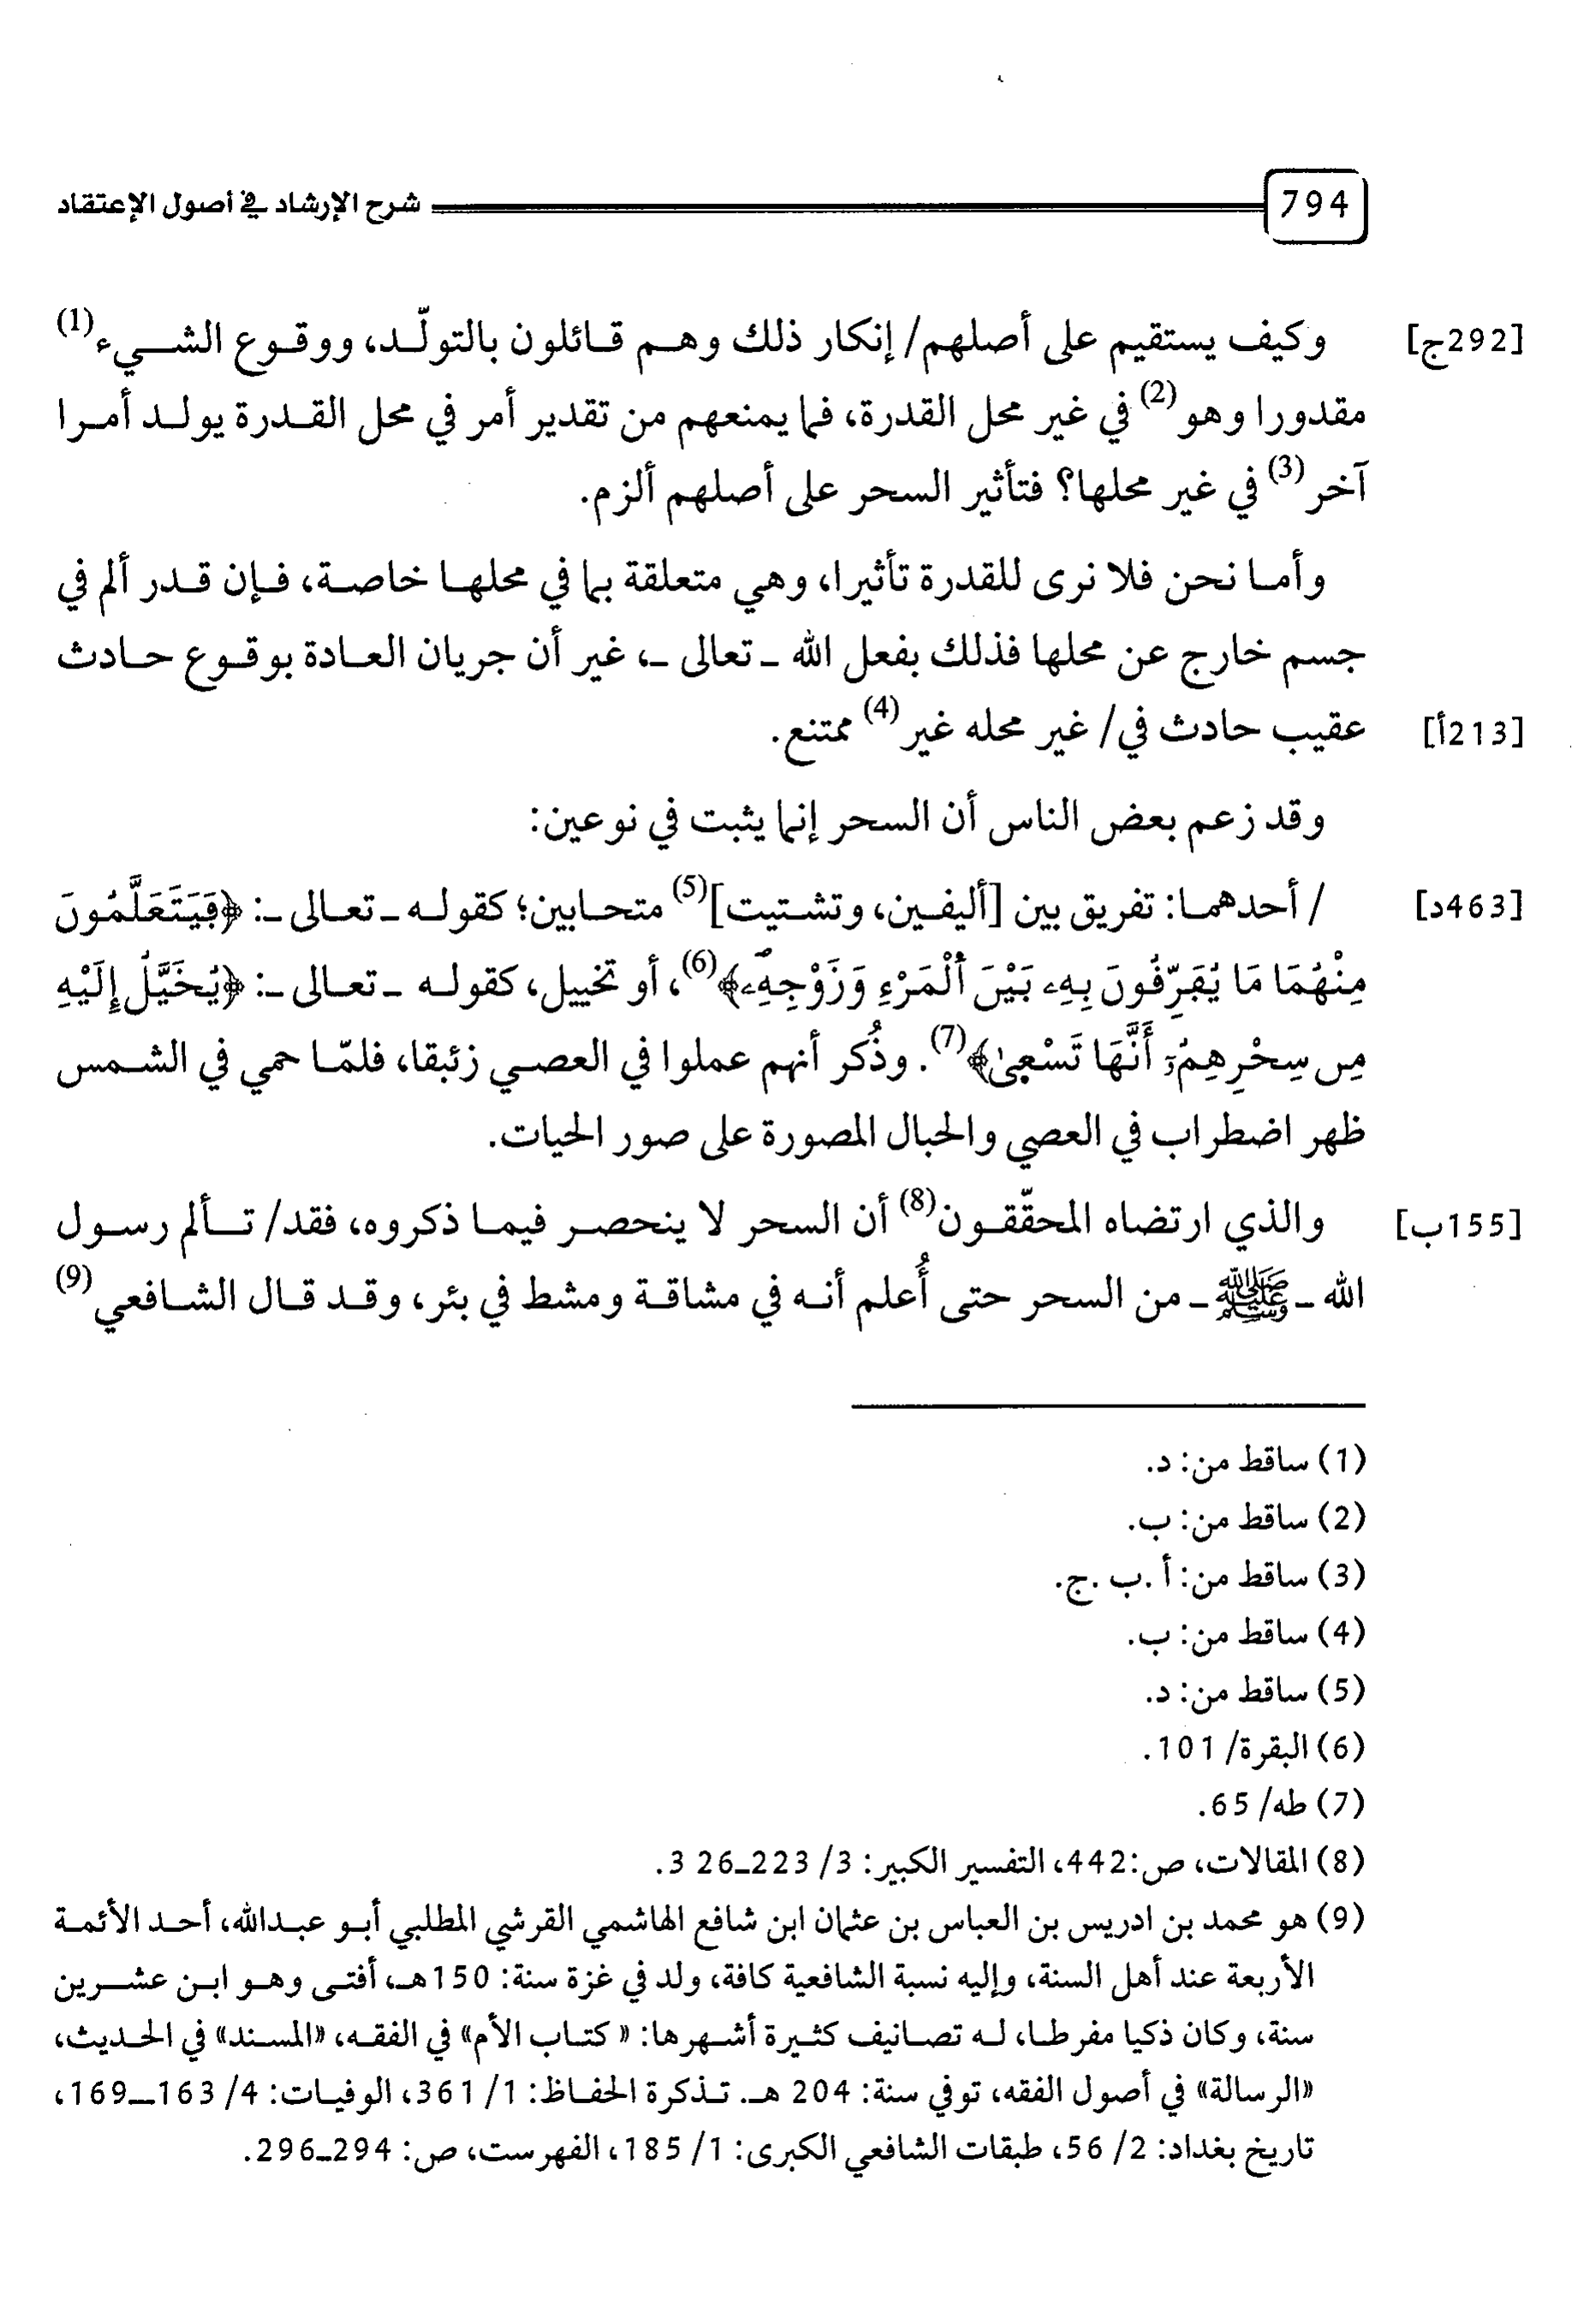 794 شرح الإرشاد في أصول الإعتقاد
[292ج] وكيف يستقيم على أصلهم/ إنكار ذلك وهم قائلون بالتولّد، ووقوع الشيء(1)
مقدورا وهو(2) في غير محل القدرة، فما يمنعهم من تقدير أمر في محل القدرة يولد أمرا
آخر(3) في غير محلها؟ فتأثير السحر على أصلهم ألزم.
وأما نحن فلا نرى للقدرة تأثيرا، وهي متعلقة بما في محلها خاصة، فإن قدر ألم في
جسم خارج عن محلها فذلك بفعل الله ـ تعالى ـ، غير أن جريان العادة بوقوع حادث
[213أ] عقيب حادث في/ غير محله غير(4) ممتنع.
وقد زعم بعض الناس أن السحر إنما يثبت في نوعين:
[463د] / أحدهما: تفريق بين [أليفين، وتشتيت](5) متحابين؛ كقوله ـ تعالى ـ: ﴿فَيَتَعَلَّمُونَ
مِنْهُمَا مَا يُفَرِّقُونَ بِهِۦ بَيْنَ اَلْمَرْءِ وَزَوْجِهِۦ﴾(6)، أو تخييل، كقوله ـ تعالى ـ: ﴿يُخَيَّلُ إِلَيْهِ
مِن سِحْرِهِمُۥٓ أَنَّهَا تَسْعىٰ﴾(7). وذُكر أنهم عملوا في العصي زئبقا، فلمّا حمي في الشمس
ظهر اضطراب في العصي والحبال المصورة على صور الحيات.
[155ب] والذي ارتضاه المحقّقون(8) أن السحر لا ينحصر فيما ذكروه، فقد/ تألم رسول
الله ـ ﷺ ـ من السحر حتى أُعلم أنه في مشاقة ومشط في بئر، وقد قال الشافعي(9)
(1) ساقط من: د.
(2) ساقط من: ب.
(3) ساقط من: أ .ب .ج.
(4) ساقط من: ب.
(5) ساقط من: د.
(6) البقرة/ 101.
(7) طه/ 65.
(8) المقالات، ص:442، التفسير الكبير: 3/ 223ـ26 3.
(9) هو محمد بن ادريس بن العباس بن عثمان ابن شافع الهاشمي القرشي المطلبي أبو عبدالله، أحد الأئمة
الأربعة عند أهل السنة، وإليه نسبة الشافعية كافة، ولد في غزة سنة: 150هـ، أفتى وهو ابن عشرين
سنة، وكان ذكيا مفرطا، له تصانيف كثيرة أشهرها: « كتاب الأم» في الفقه، «المسند» في الحديث،
«الرسالة» في أصول الفقه، توفي سنة: 204 هـ. تذكرة الحفاظ: 1/ 361، الوفيات: 4/ 163ـ169،
تاريخ بغداد: 2/ 56، طبقات الشافعي الكبرى: 1/ 185، الفهرست، ص: 294ـ296.